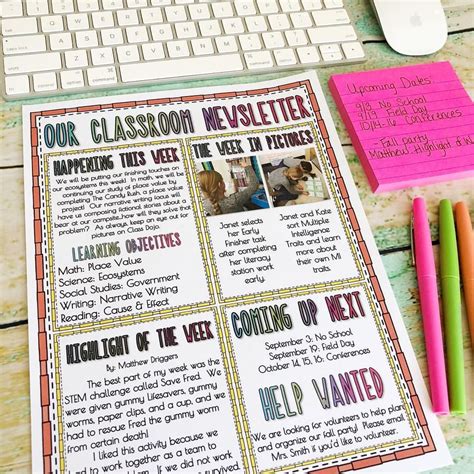 OUR CLASSROOM NEWSLETTER
HAPPENING THIS WEEK
We will be putting our finishing touches on
our ecosystems this week! In math, we will be
continuing our study of place value by
completing The Candy Bush, a place value
project! Our narrative writing focus will
have us composing fictional stories about a
bear at our campsite...how will they solve this
problem? As always keep an eye out for
pictures on Class Dojo.
LEARNING OBJECTIVES
Math: Place Value
Science: Ecosystems
Social Studies: Government
Writing: Narrative Writing
Reading: Cause & Effect
THE WEEK IN PICTURES
Janet selects
her Early
Finisher task
after completing
her literacy
station work
early.
Janet and Kate
sort Multiple
Intelligence
Traits and learn
more about
their own MI
traits.
HIGHLIGHT OF THE WEEK
By: Matthew Driggers
The best part of my week was the
STEM challenge called Save Fred. We
were given gummy Lifesavers, gummy
worms, paper clips, and a cup, and we
had to rescue Fred the gummy worm
from certain death!
I liked this activity because we
had to work together as a team to
COMING UP NEXT
September 3: No School
September 19: Field Day
October 14, 15, 16: Conferences
HELP WANTED
We are looking for volunteers to help plan
and organize our fall party! Please email
Mrs. Smith if you'd like to volunteer.
Upcoming Dates
9/3 No School
9/19 Field Day
10/14-16 Conferences
- Fall party
Matthew Highlight of